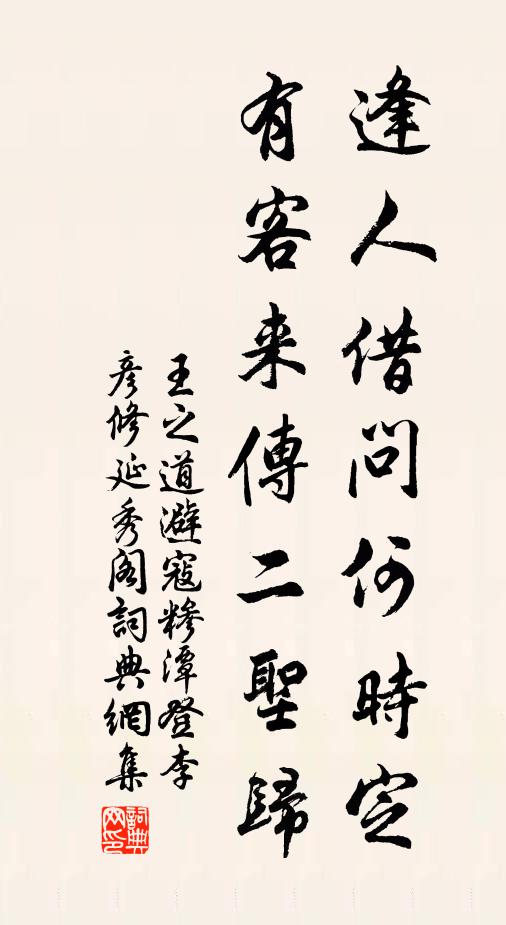 逢人借问何時定
有客来傳二聖歸
王之道避寇糝潭登李
彦修延秀阁詞典網集
詞典网印